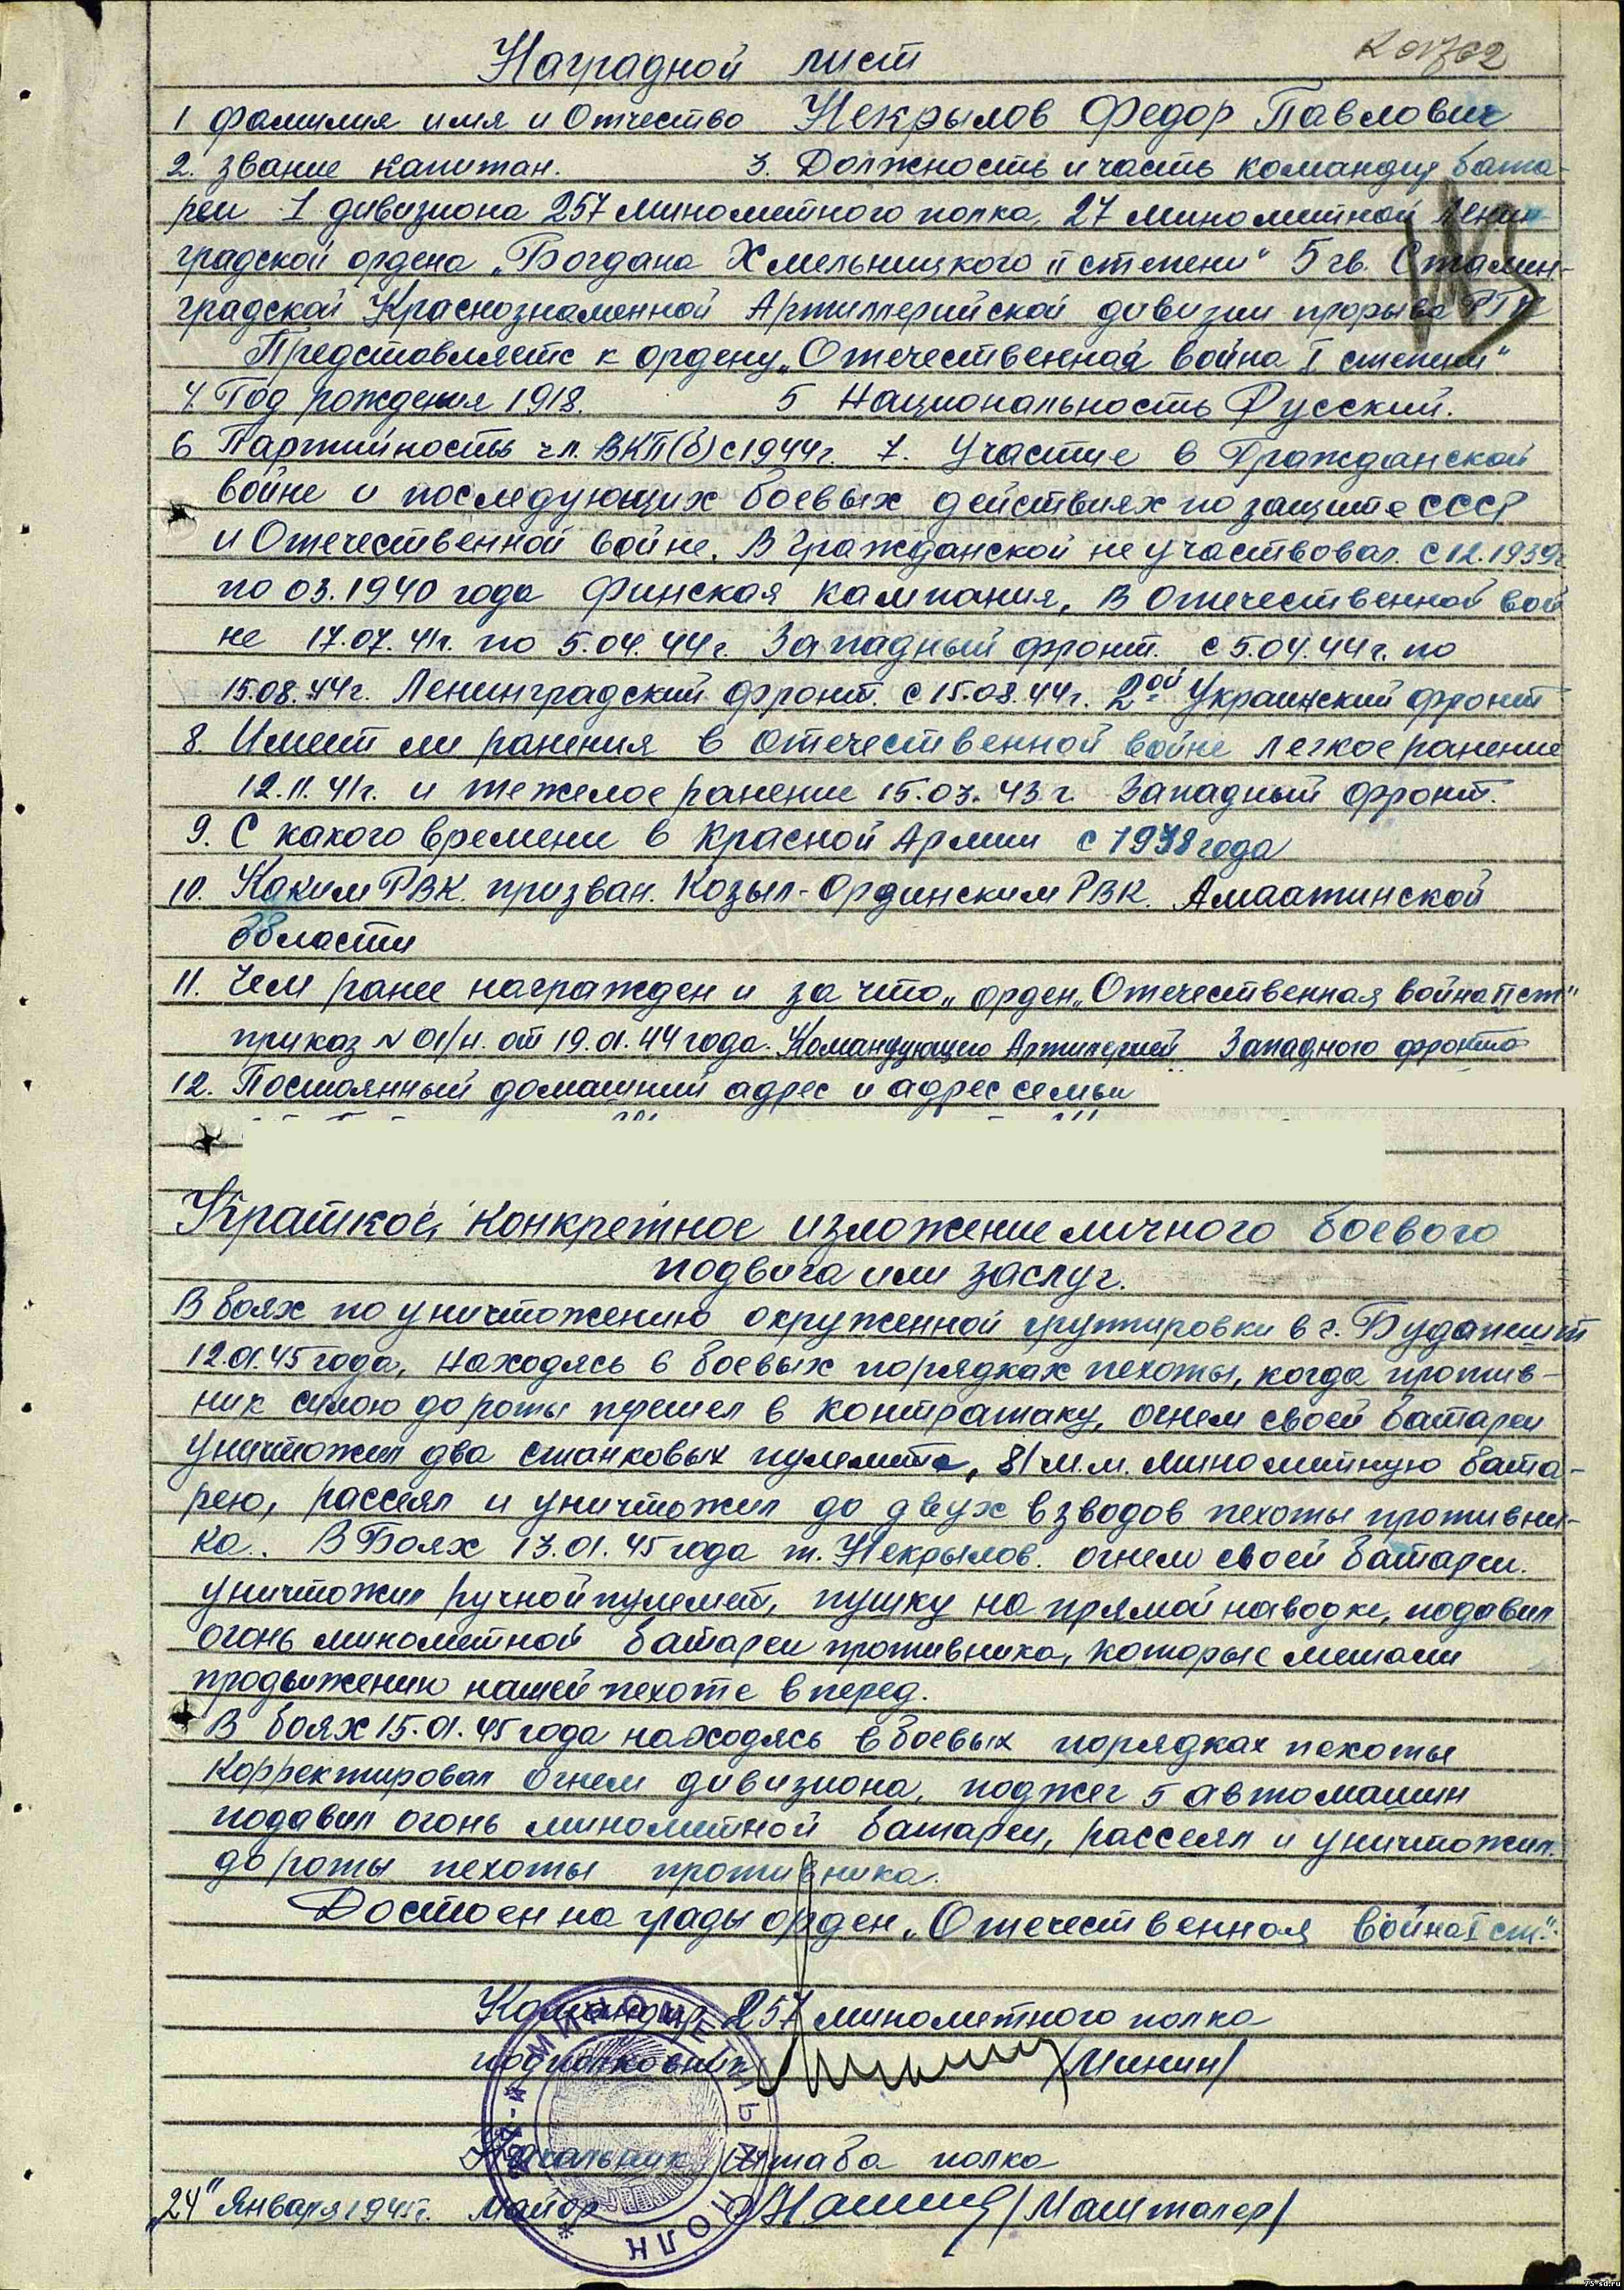 Наградной лист
1 Фамилия имя и Отчество Некрылов Федор Павлович
2. Звание капитан. 3. Должность и часть командир бата-
реи 1 дивизиона 257 минометного полка, 27 минометной Ленин-
градской ордена „Богдана Хмельницкого II степени" 5 гв. Сталин-
градской Краснознаменной Артиллерийской дивизии прорыва РГК
Представляетс к ордену „Отечественная война I степени"
4. Год рождения 1918. 5 Национальность Русский.
6 Партийность чл. ВКП(б) с 1944г. 7. Участие в Гражданской
войне и последующих боевых действиях по защите СССР
и Отечественной войне. В Гражданской не участвовал. с 12.1939г
по 03.1940 года Финская кампания, В Отечественной вой
не 17.07.41г. по 5.04.44г. Западный фронт. с 5.04.44г. по
15.08.44г. Ленинградский фронт. с 15.08.44г. 2ой Украинский фронт
8. Имеет ли ранения в отечественной войне легкое ранение
12.11.41г. и тежелое ранение 15.03.43г. Западный фронт.
9. С какого времени в Красной Армии с 1938 года
10. Каким РВК. призван. Козыл-Ординским РВК. Амаатинской
области
11. Чем ранее награжден и за что „ орден „Отечественная война II ст"
приказ N 01/н. от 19.01.44 года. Командующего Артилерией Западного фронта
12. Постоянный домашний адрес и адрес семьи
Краткое, конкретное изложение личного боевого
подвига или заслуг.
В боях по уничтожению окруженной групировки в г. Будапешт
12.01.45 года, находясь в боевых порядках пехоты, когда против-
ник силою до роты перешел в контратаку, огнем своей батареи
уничтожил два станковых пулемета, 81 м.м. минометную бата-
рею, рассеял и уничтожил до двух взводов пехоты противни-
ка. В Боях 13.01.45 года т. Некрылов. огнем своей батареи.
уничтожил ручной пулемет, пушку на прямой наводке, подавил
огонь минометной батареи противника, которые мешали
продвижению нашей пехоте вперед.
В боях 15.01.45 года находясь в боевых порядках пехоты
корректировал огнем дивизиона, поджег 5 автомашин
подавил огонь минометной батареи, рассеял и уничтожил.
до роты пехоты противника.
Достоен награды орден „Отечественная война I ст."
Командир 257 минометного полка
подполковник /Минин/
МИНОМЕТНЫЙ ПОЛК
Начальник Штаба полка
„24" Января 1945г. майор /Машталер/